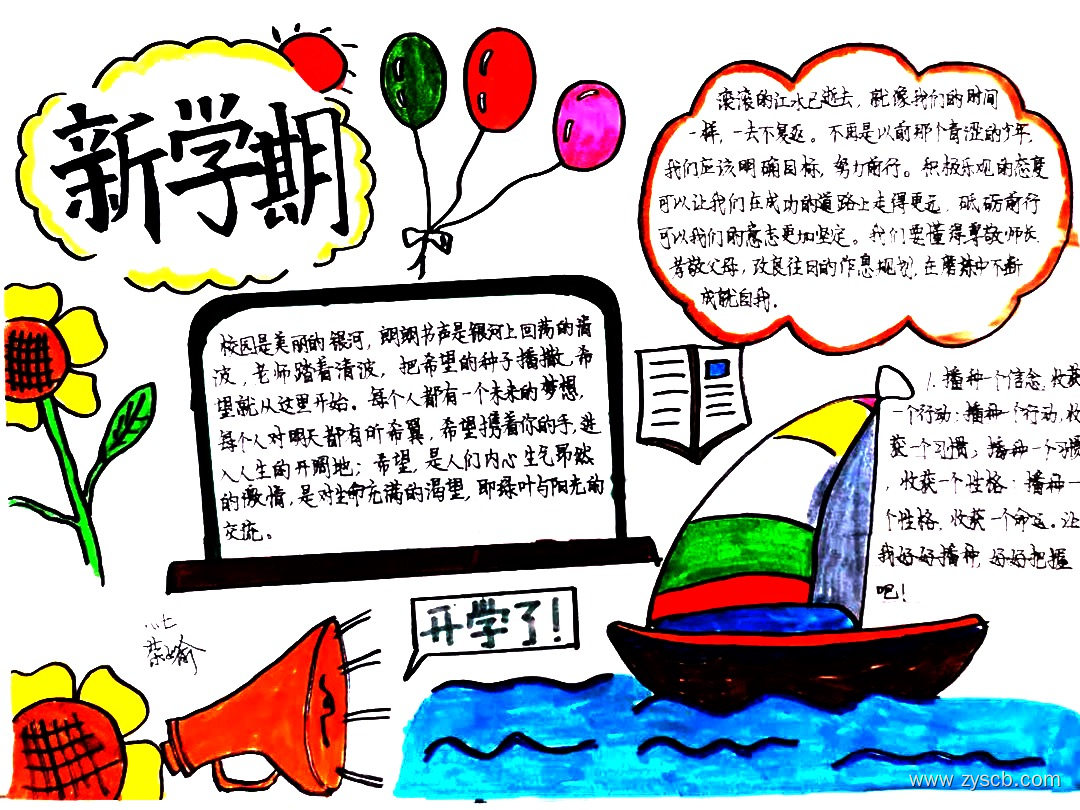 新学期
滚滚的江水已逝去，就像我们的时间
一样，一去不复返。不再是以前那个青涩的少年，
我们应该明确目标，努力前行。积极乐观的态度
可以让我们在成功的道路上走得更远，砥砺前行
可以我们的意志更加坚定。我们要懂得尊敬师长
孝敬父母，改良往日的作息规划，在磨炼中不断
成就自我。
校园是美丽的银河，朗朗书声是银河上回荡的清
波，老师踏着清波，把希望的种子播撒，希
望就从这里开始。每个人都有一个未来的梦想，
每个人对明天都有所希翼，希望携着你的手，进
入人生的开阔地；希望，是人们内心生气昂然
的激情，是对生命充满的渴望，耶绿叶与阳光的
交流。
1、播种一个信念，收获
一个行动；播种一个行动，收
获一个习惯；播种一个习惯
，收获一个性格；播种一
个性格，收获一个命运。让
我好好播种，好好把握
吧！
开学了！
www.zyscb.com